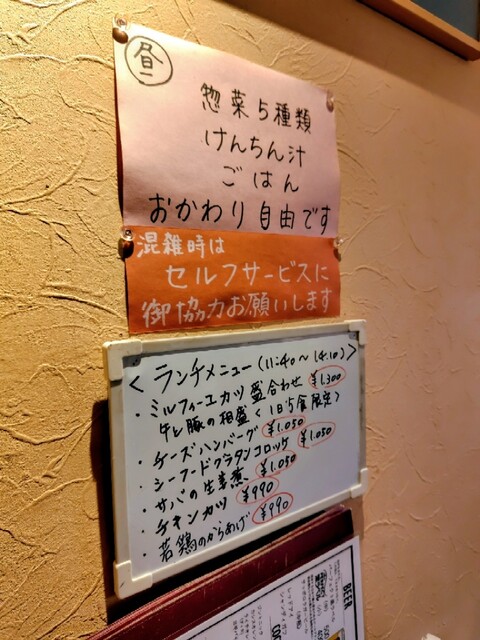 昼
惣菜5種類
けんちん汁
ごはん
おかわり自由です
混雑時は
セルフサービスに
御協力お願いします
<ランチメニュー(11:40~14:10)>
・ミルフィーユカツ盛合わせ ¥1.300
牛と豚の相盛<1日5食限定>
・チーズハンバーグ ¥1.050
・シーフードグラタンコロッケ ¥1.050
・サバの生姜煮 ¥1.050
・チキンカツ ¥990
・若鶏のからあげ ¥990
BEER